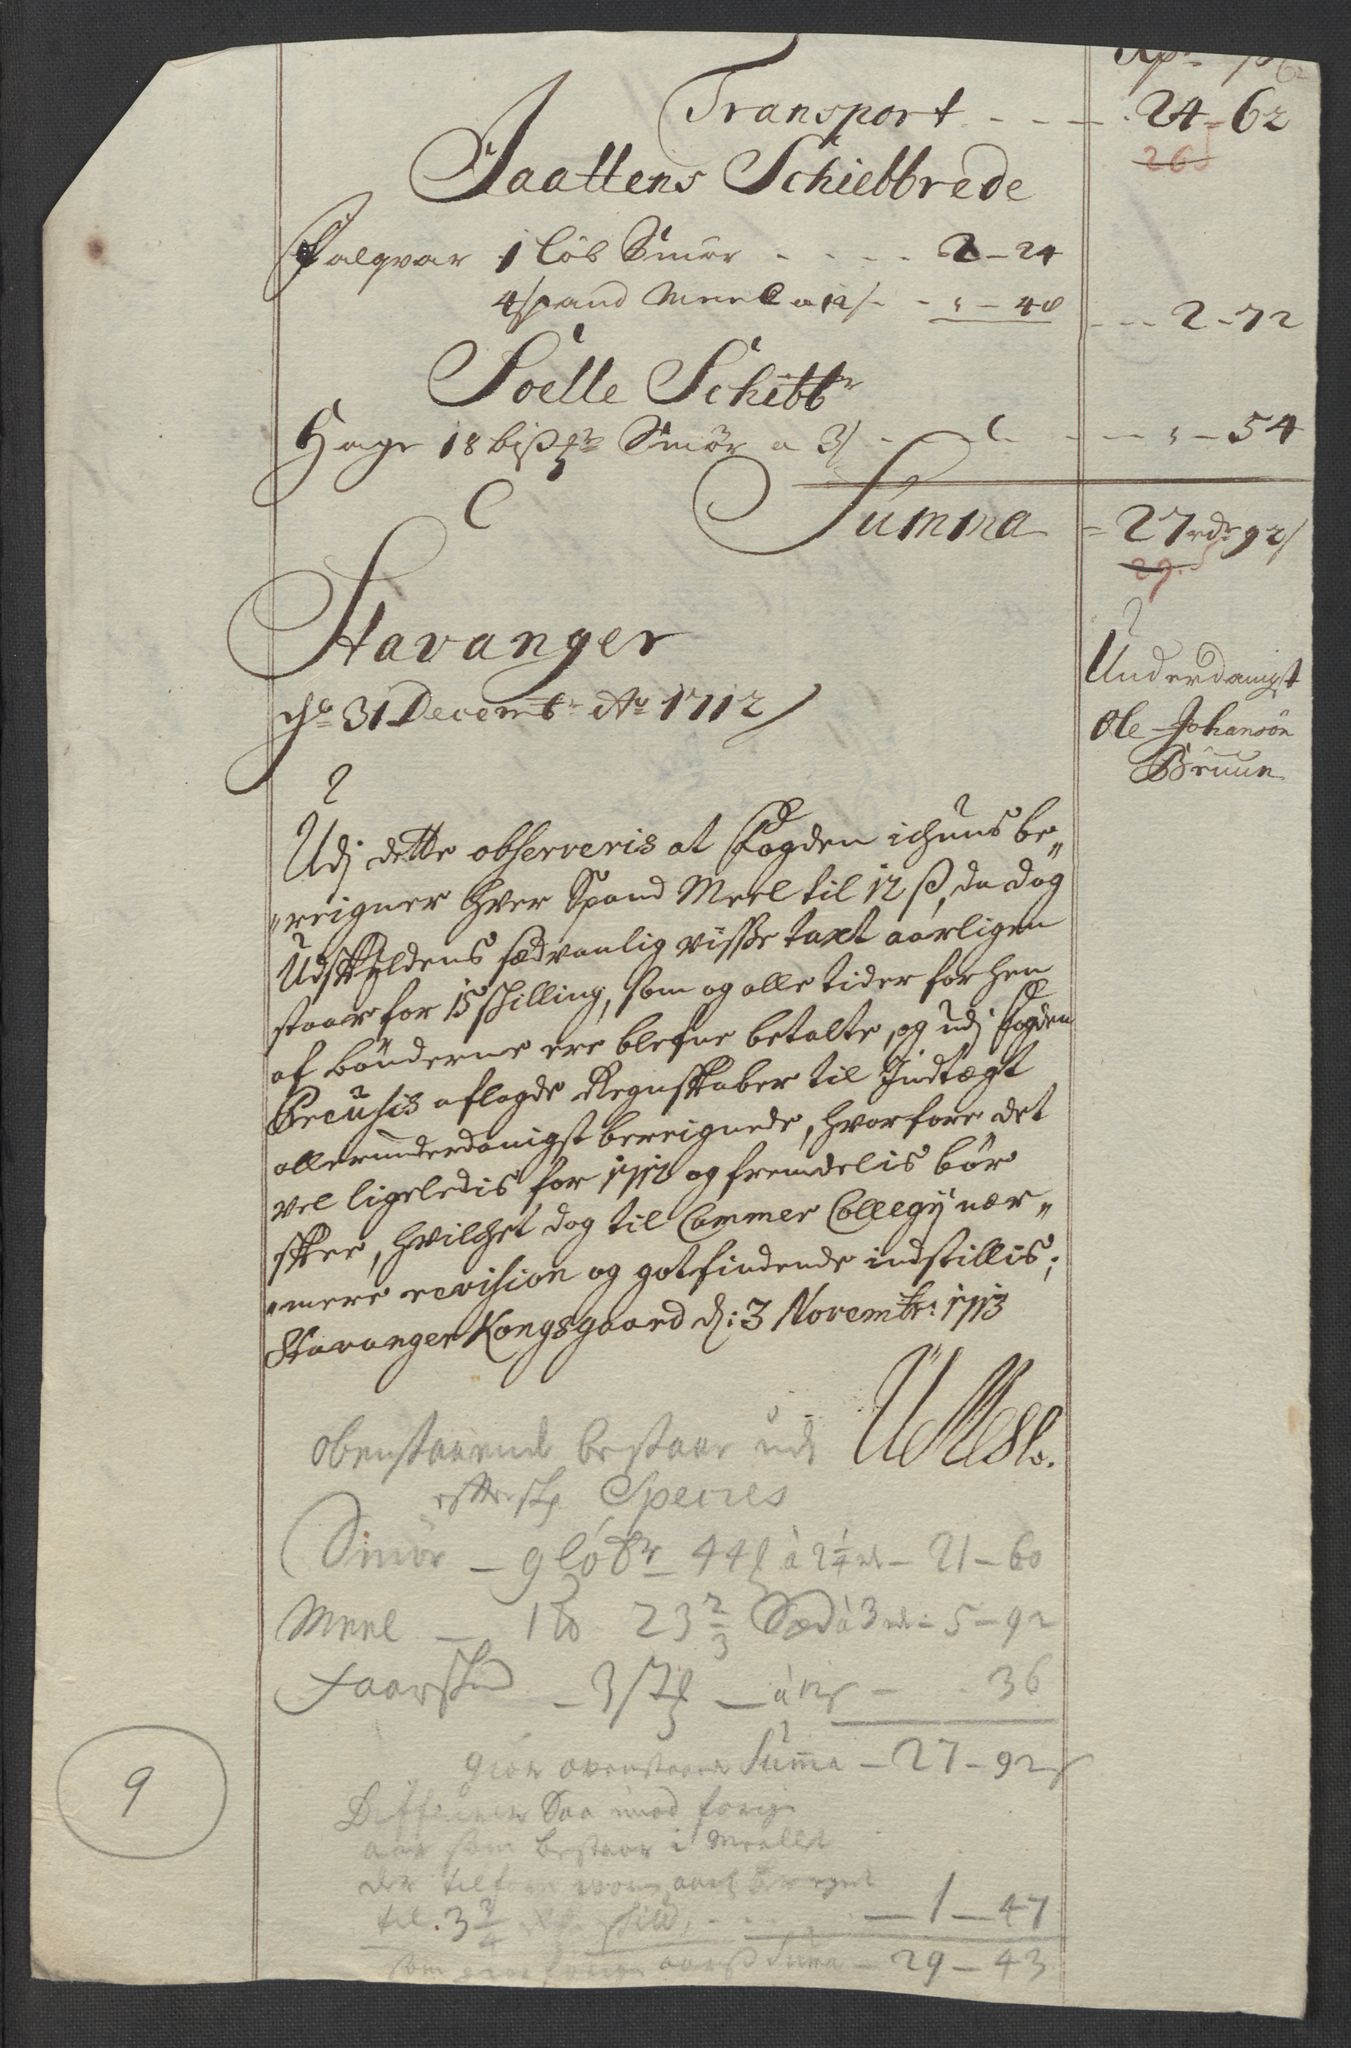 Rdr ß
62
Transport - - - 24 - 62
26
Jaattens Schibbrede
Falqvar 1 løb Smør - - - - 2 - 24
4 spand Meel a 12 s - - : - 48 - - - 2 - 72
Soelle Schibbr
Hage 18 bißpd Smør a 3 s - - - - : - 54
Summa = 27 rdr 92 s
29
Stavanger
dh 31 Decembr Ao 1712
Underdanigst
Ole Johansøn
Bruun
Udj dette observeris at Fogden ichuns be„
„reigner hver Spand Meel til 12 ß, da dog
Udskyldens sædvanlig visse taxt aarligen
staar for 15 skilling, som og alle tider for hen
af bønderne ere blefne betalte, og udj Fogden
Pecusis aflagde Regnskaber til Indtægt
allerunderdanigst bereignede, hvorfore det
vel ligeledis for 1712 og fremdelis bør
skee, hvilchet dog til Cammer Collegij nær„
„mere revision og gotfindende indstillis;
Stavanger Kongsgaard d: 3 Novembr: 1713
obenstaaende bestaar udj
efterskr Species
Smør - 9 løbr 44 à 2 1/4 rd - 21 - 60
Meel - 1 23 2/3 à 3 rd - 5 - 92
Faarskind - 3 st - à 12 s - - 36
giør ovenstaaende Summa - 27 - 92 s
Differerer Saa imod forige
aar som bestaar i Meellet
der tilforn
til 3 3/4 - - - 1 - 47
som giør forige aars Suma - 29 - 43
9